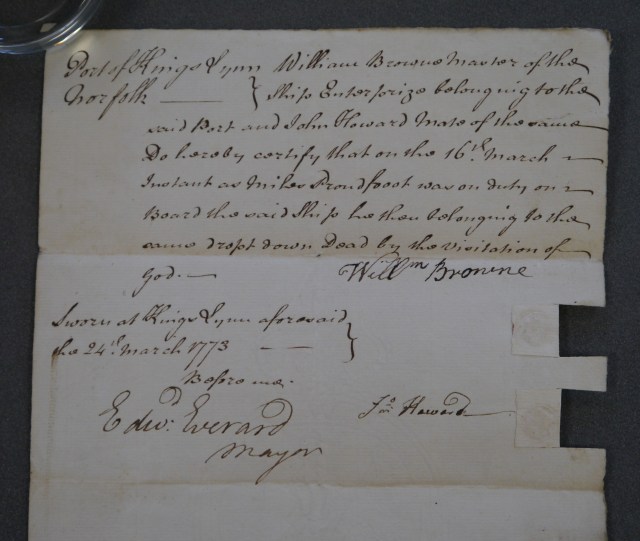 Port of Kings Lynn } William Browne Master of the
Norfolk —— } Ship Enterprize belonging to the
said Port and John Howard Mate of the same
Do hereby certify that on the 16th. March
Instant as Miles Proudfoot was on duty on
Board the said Ship he then belonging to the
same dropt down Dead by the Visitation of
God. —
Willm Browne
Sworn at Kings Lynn aforesaid }
the 24th. March 1773 ——
Before me.
Jno Howard
Edwd: Everard
Mayor